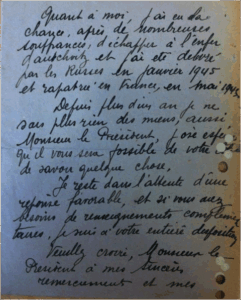 Quant à moi, j'ai eu la
chance, après de nombreuses
souffrances, d'échapper à l'enfer
d'Auschwitz et j'ai été délivré
par les Russes en janvier 1945
et rapatrié en France, en mai 1945
Depuis plus d'un an je ne
sais plus rien des miens, aussi
Monsieur le Président, j'ose espérer
qu'il vous sera possible de votre côté
de savoir quelque chose.
Je reste dans l'attente d'une
réponse favorable, et si vous avez
besoins de renseignements complémen
taires, je suis à votre entière disposition
Veuillez croire, Monsieur le
Président à mes sincères
remerciement et mes